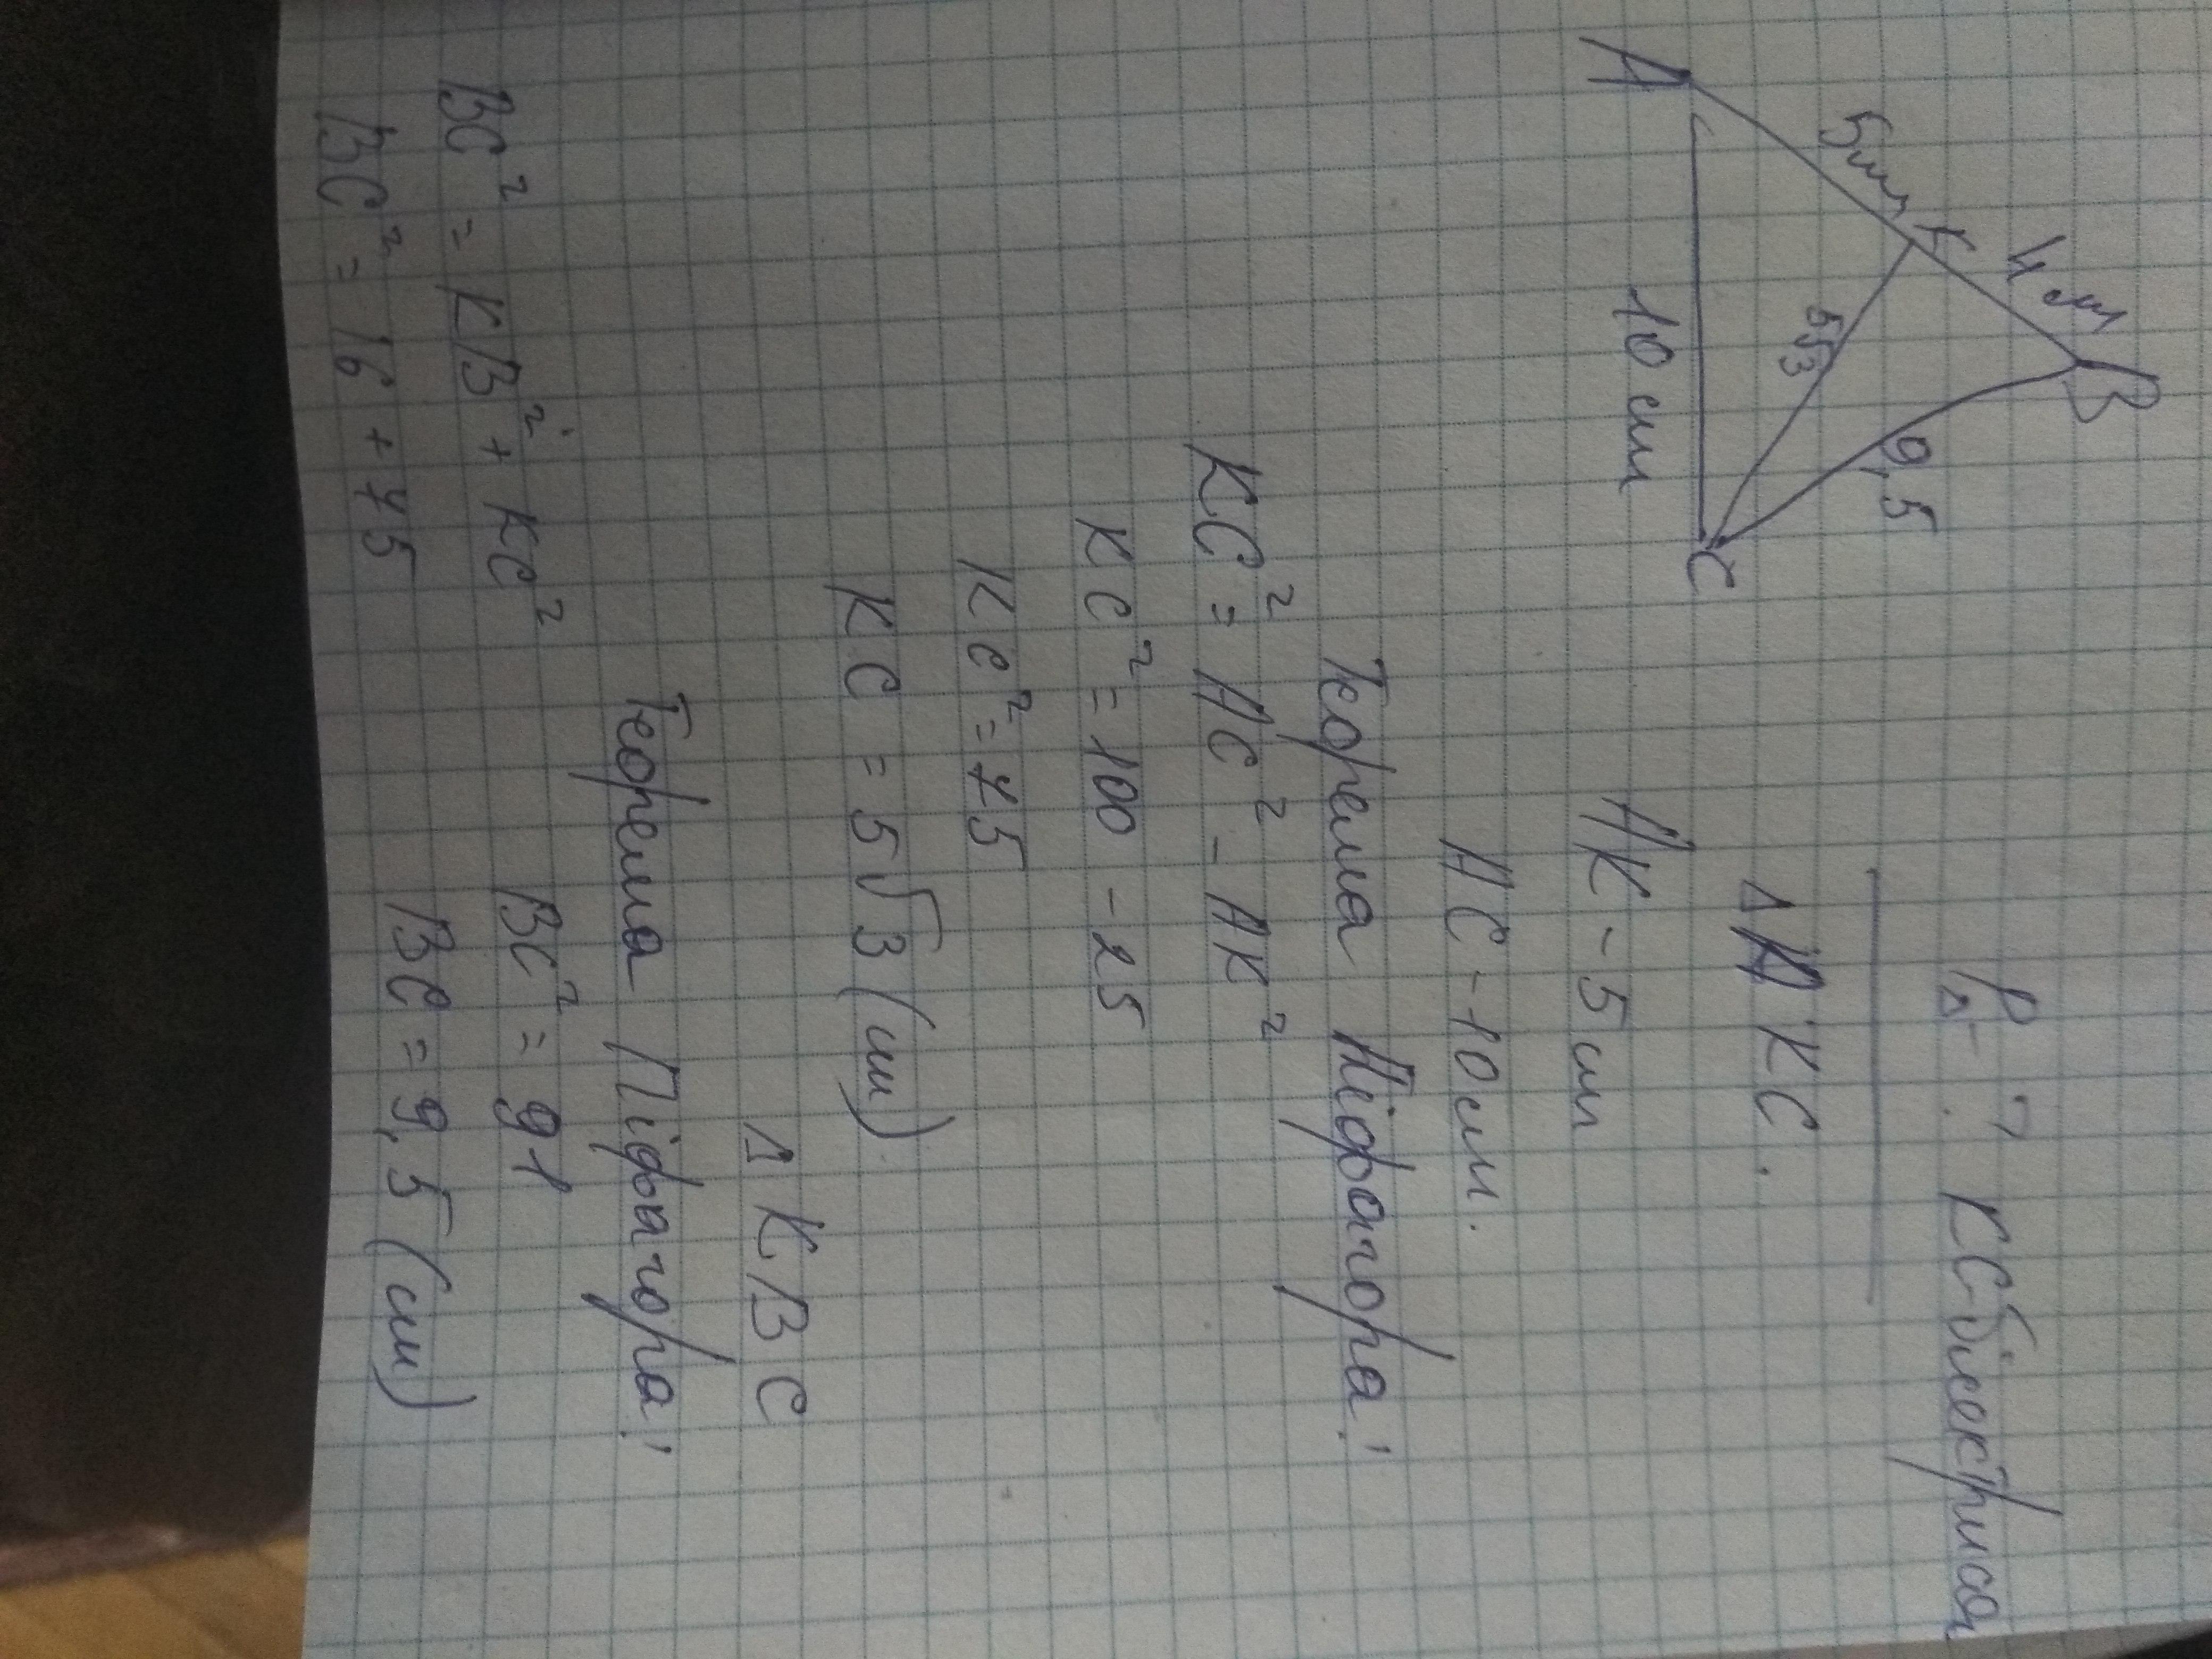 B
4 см
K
5 см
9,5
5√3
10 см
A
C
P△ - ? KC - бісектриса
△AKC.
AK - 5 см
AC - 10 см.
Теорема Піфагора!
KC² = AC² - AK²
KC² = 100 - 25
KC² = 75
KC = 5√3 (см)
△KBC
Теорема Піфагора!
BC² = KB² + KC²
BC² = 16 + 75
BC² = 91
BC = 9,5 (см)